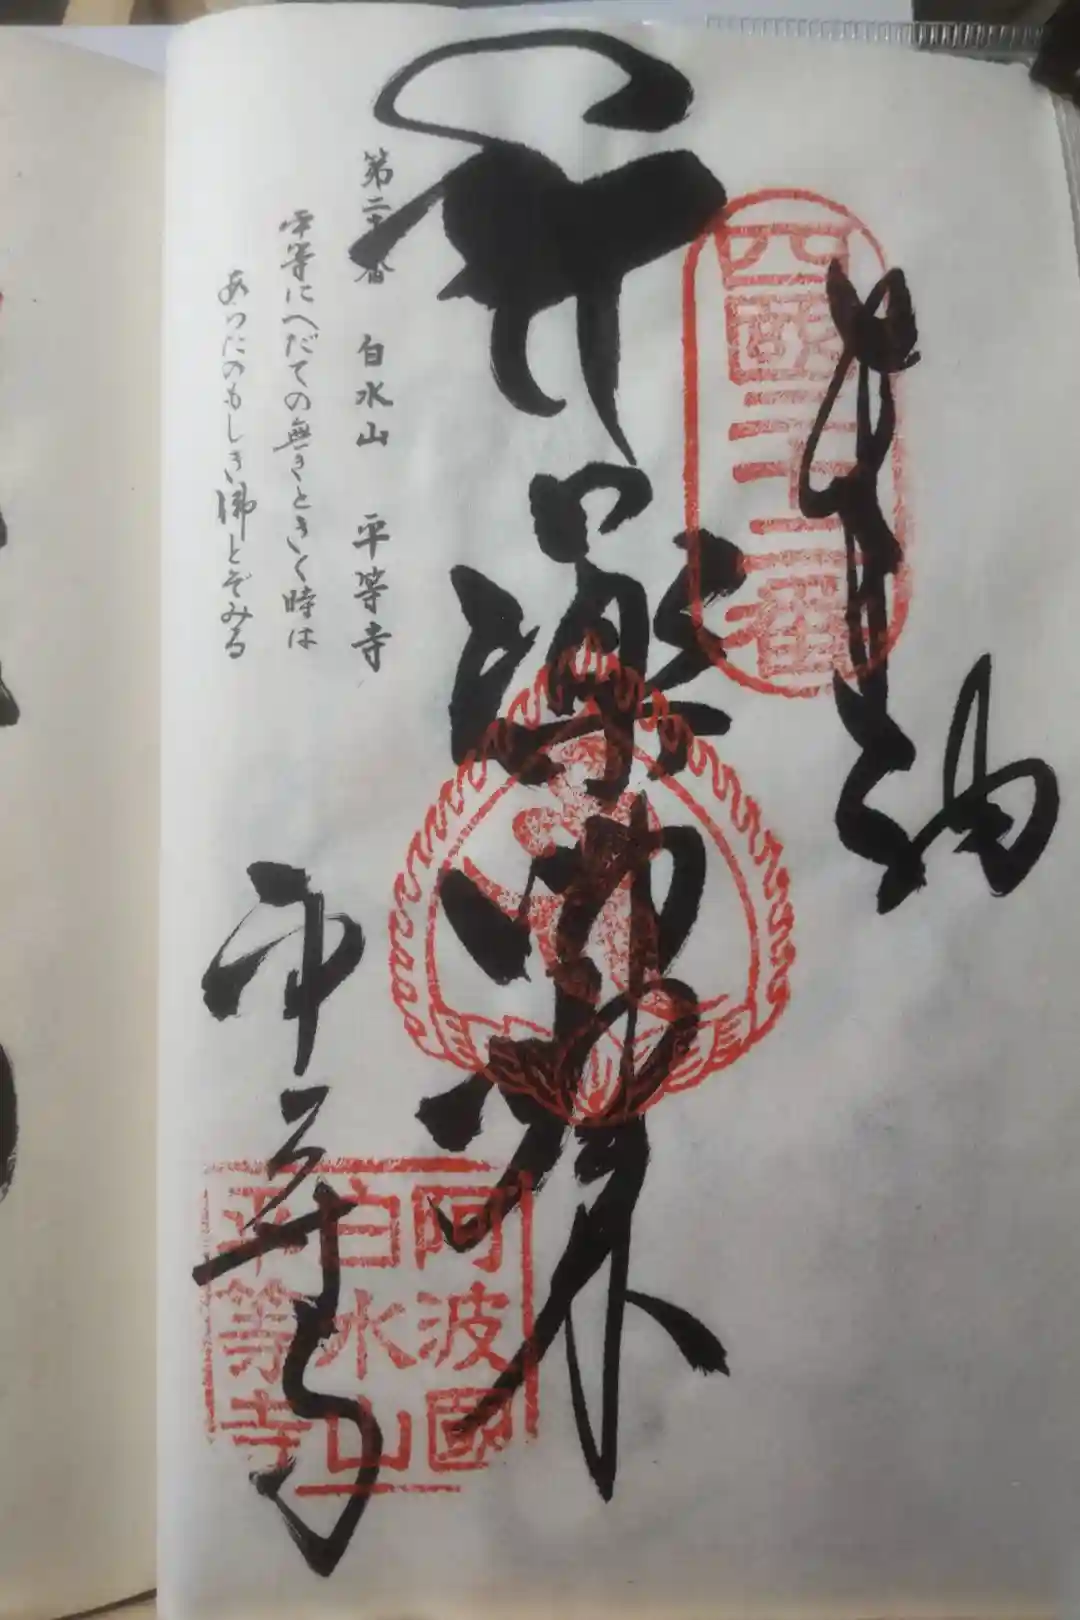 奉納
四國二十二番
薬師如来
第二十 番 白水山 平等寺
平等にへだての無きときく時は
あらたのもしき佛とぞみる
平等寺
阿波國
白水山
平等寺